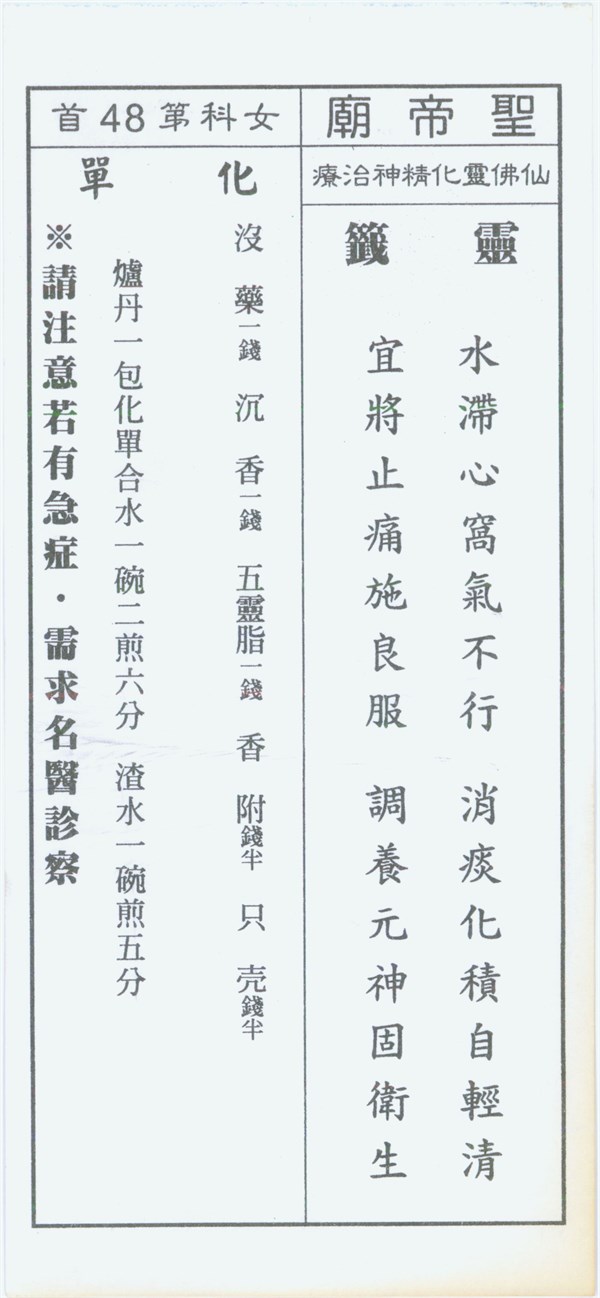 聖帝廟
仙佛靈化精神治療
靈籤
水滯心窩氣不行 消痰化積自輕清
宜將止痛施良服 調養元神固衛生
女科第48首
化單
沒藥一錢 沉香一錢 五靈脂一錢 香附錢半 只壳錢半
爐丹一包化單合水一碗二煎六分 渣水一碗煎五分
※請注意若有急症・需求名醫診察